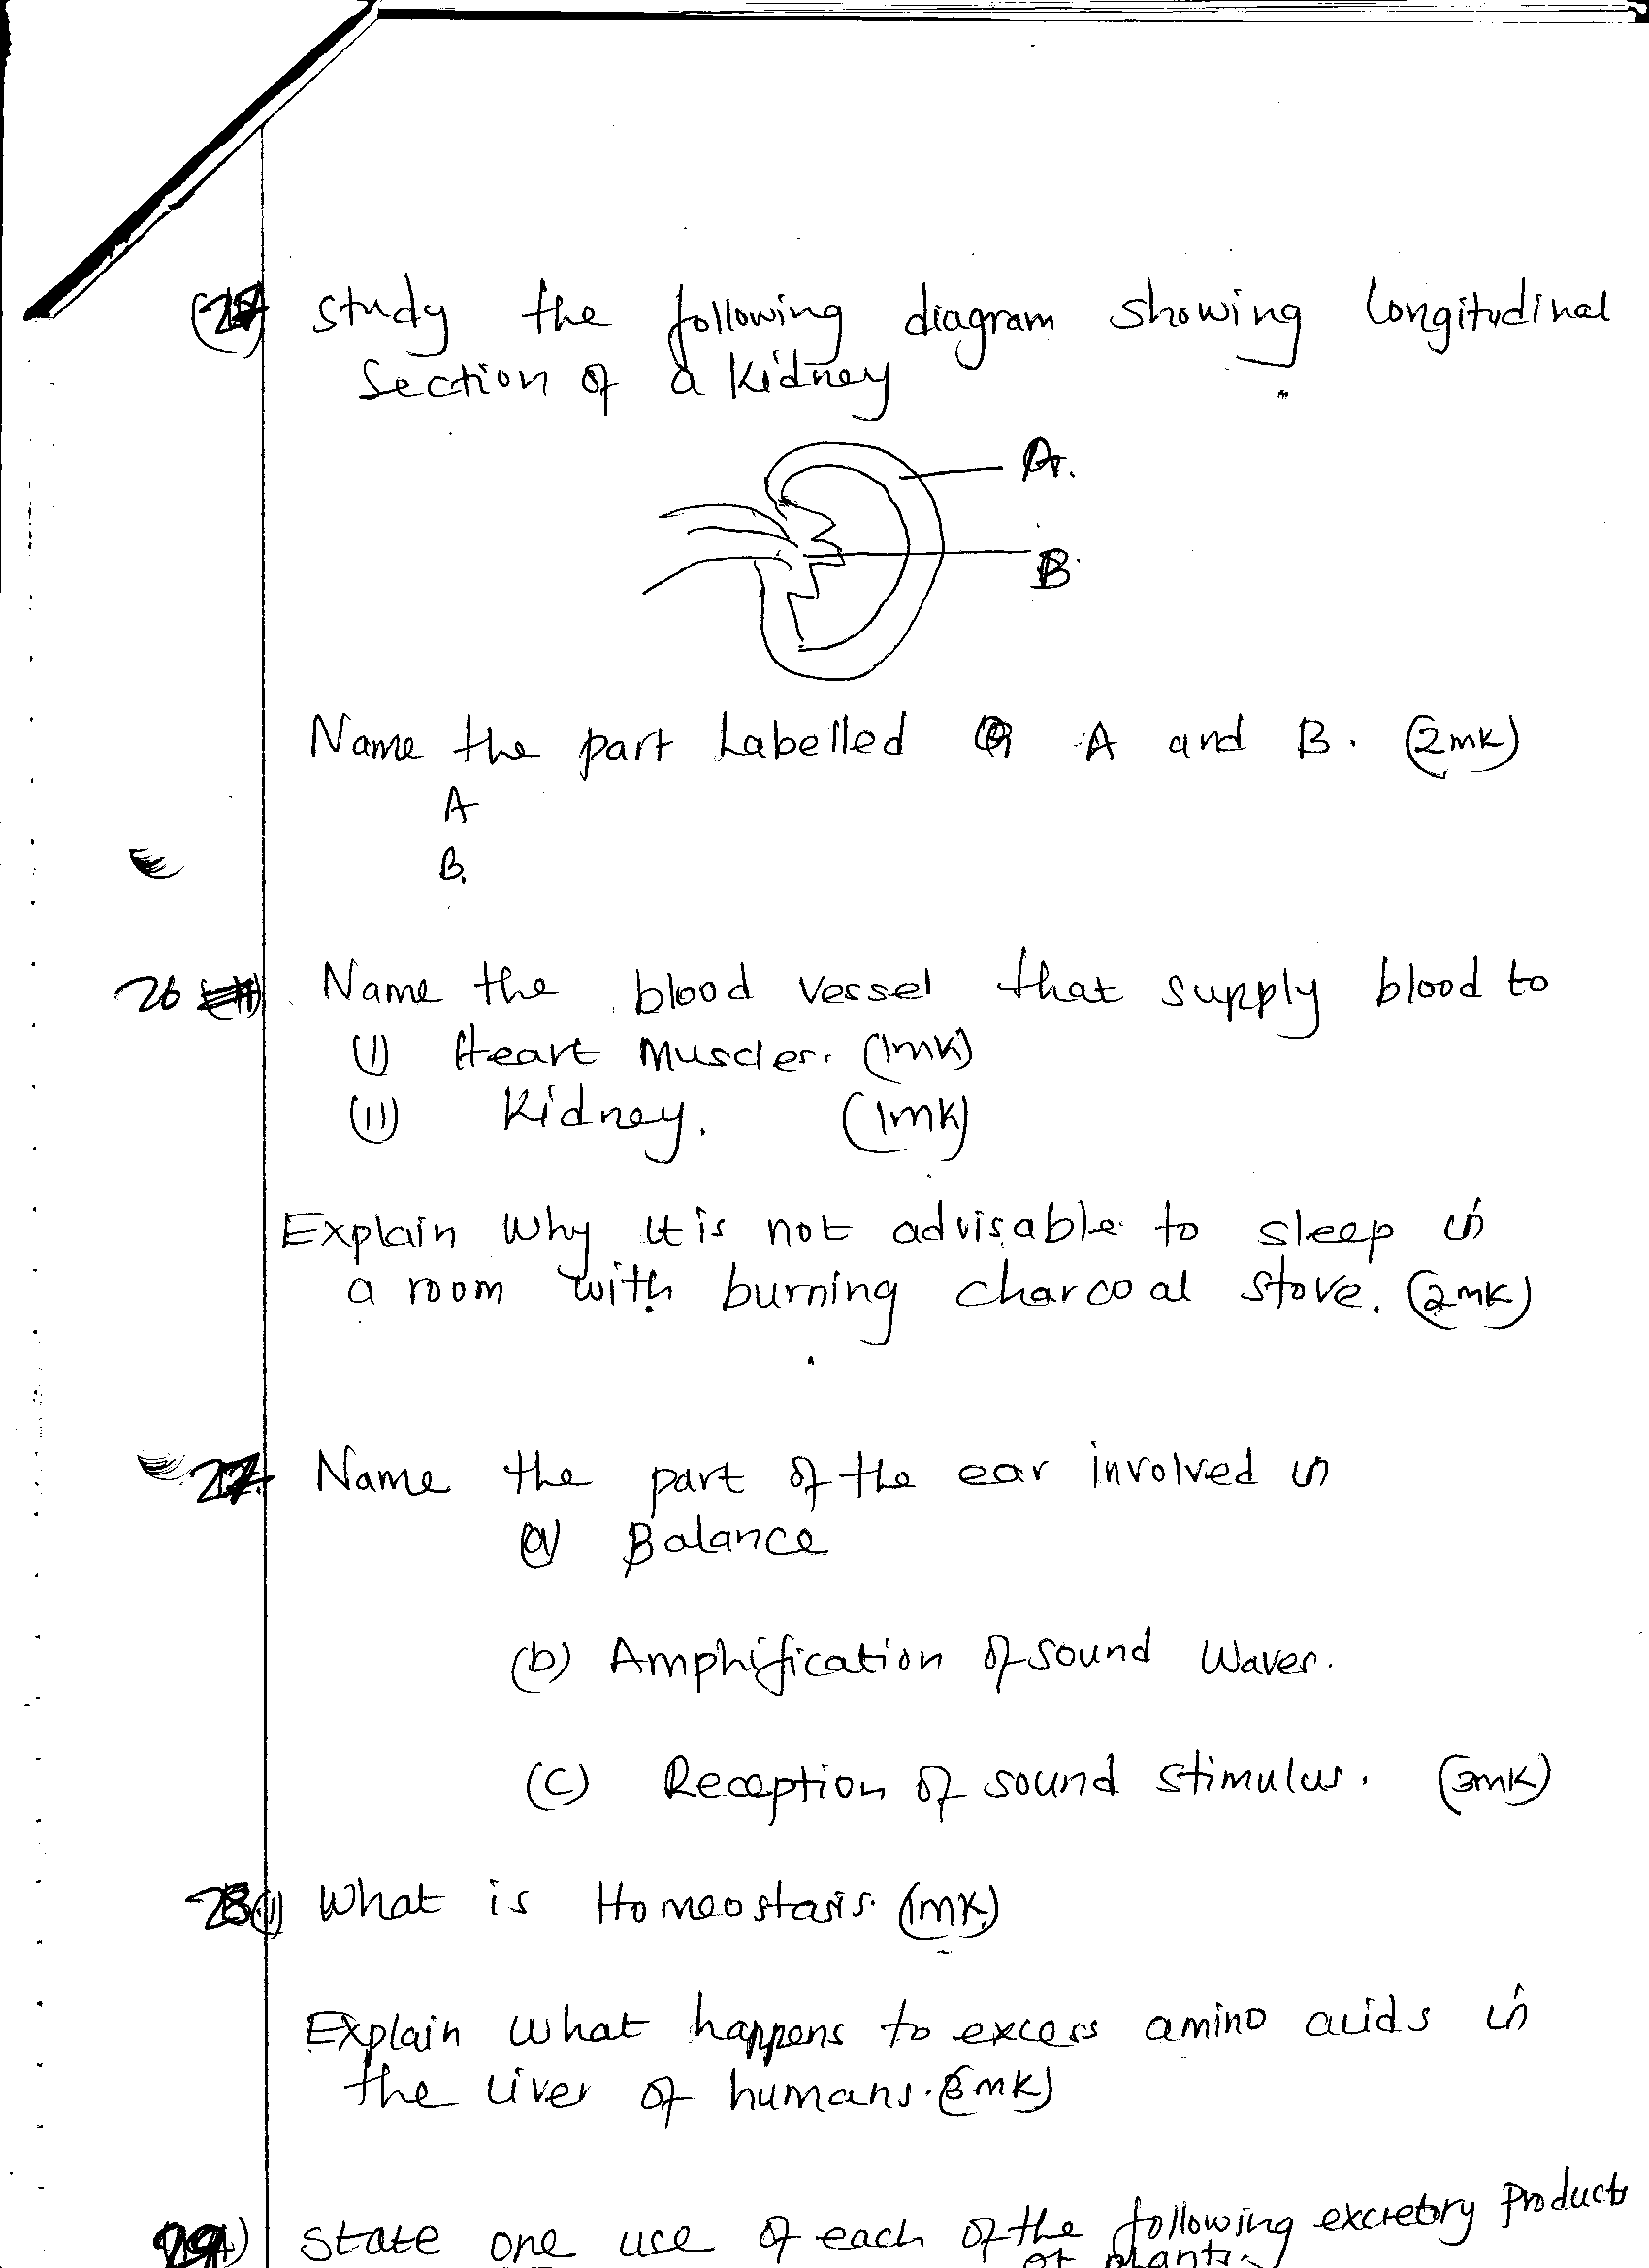 study the following diagram showing longitudinal
Section of a kidney
A.
B
Name the part Labelled A and B. (2mk)
A
B.
26 Name the blood vessel that supply blood to
(i) Heart Muscles. (1mk)
(ii) Kidney. (1mk)
Explain why it is not advisable to sleep in
a room with burning charcoal stove. (2mk)
27. Name the part of the ear involved in
(a) Balance
(b) Amphification of sound waves.
(c) Reception of sound stimulus. (3mk)
28(i) What is Homeostasis. (1mk)
Explain what happens to excess amino acids in
the liver of humans. (3mk)
29 State one use of each of the following excretory products
of plants.